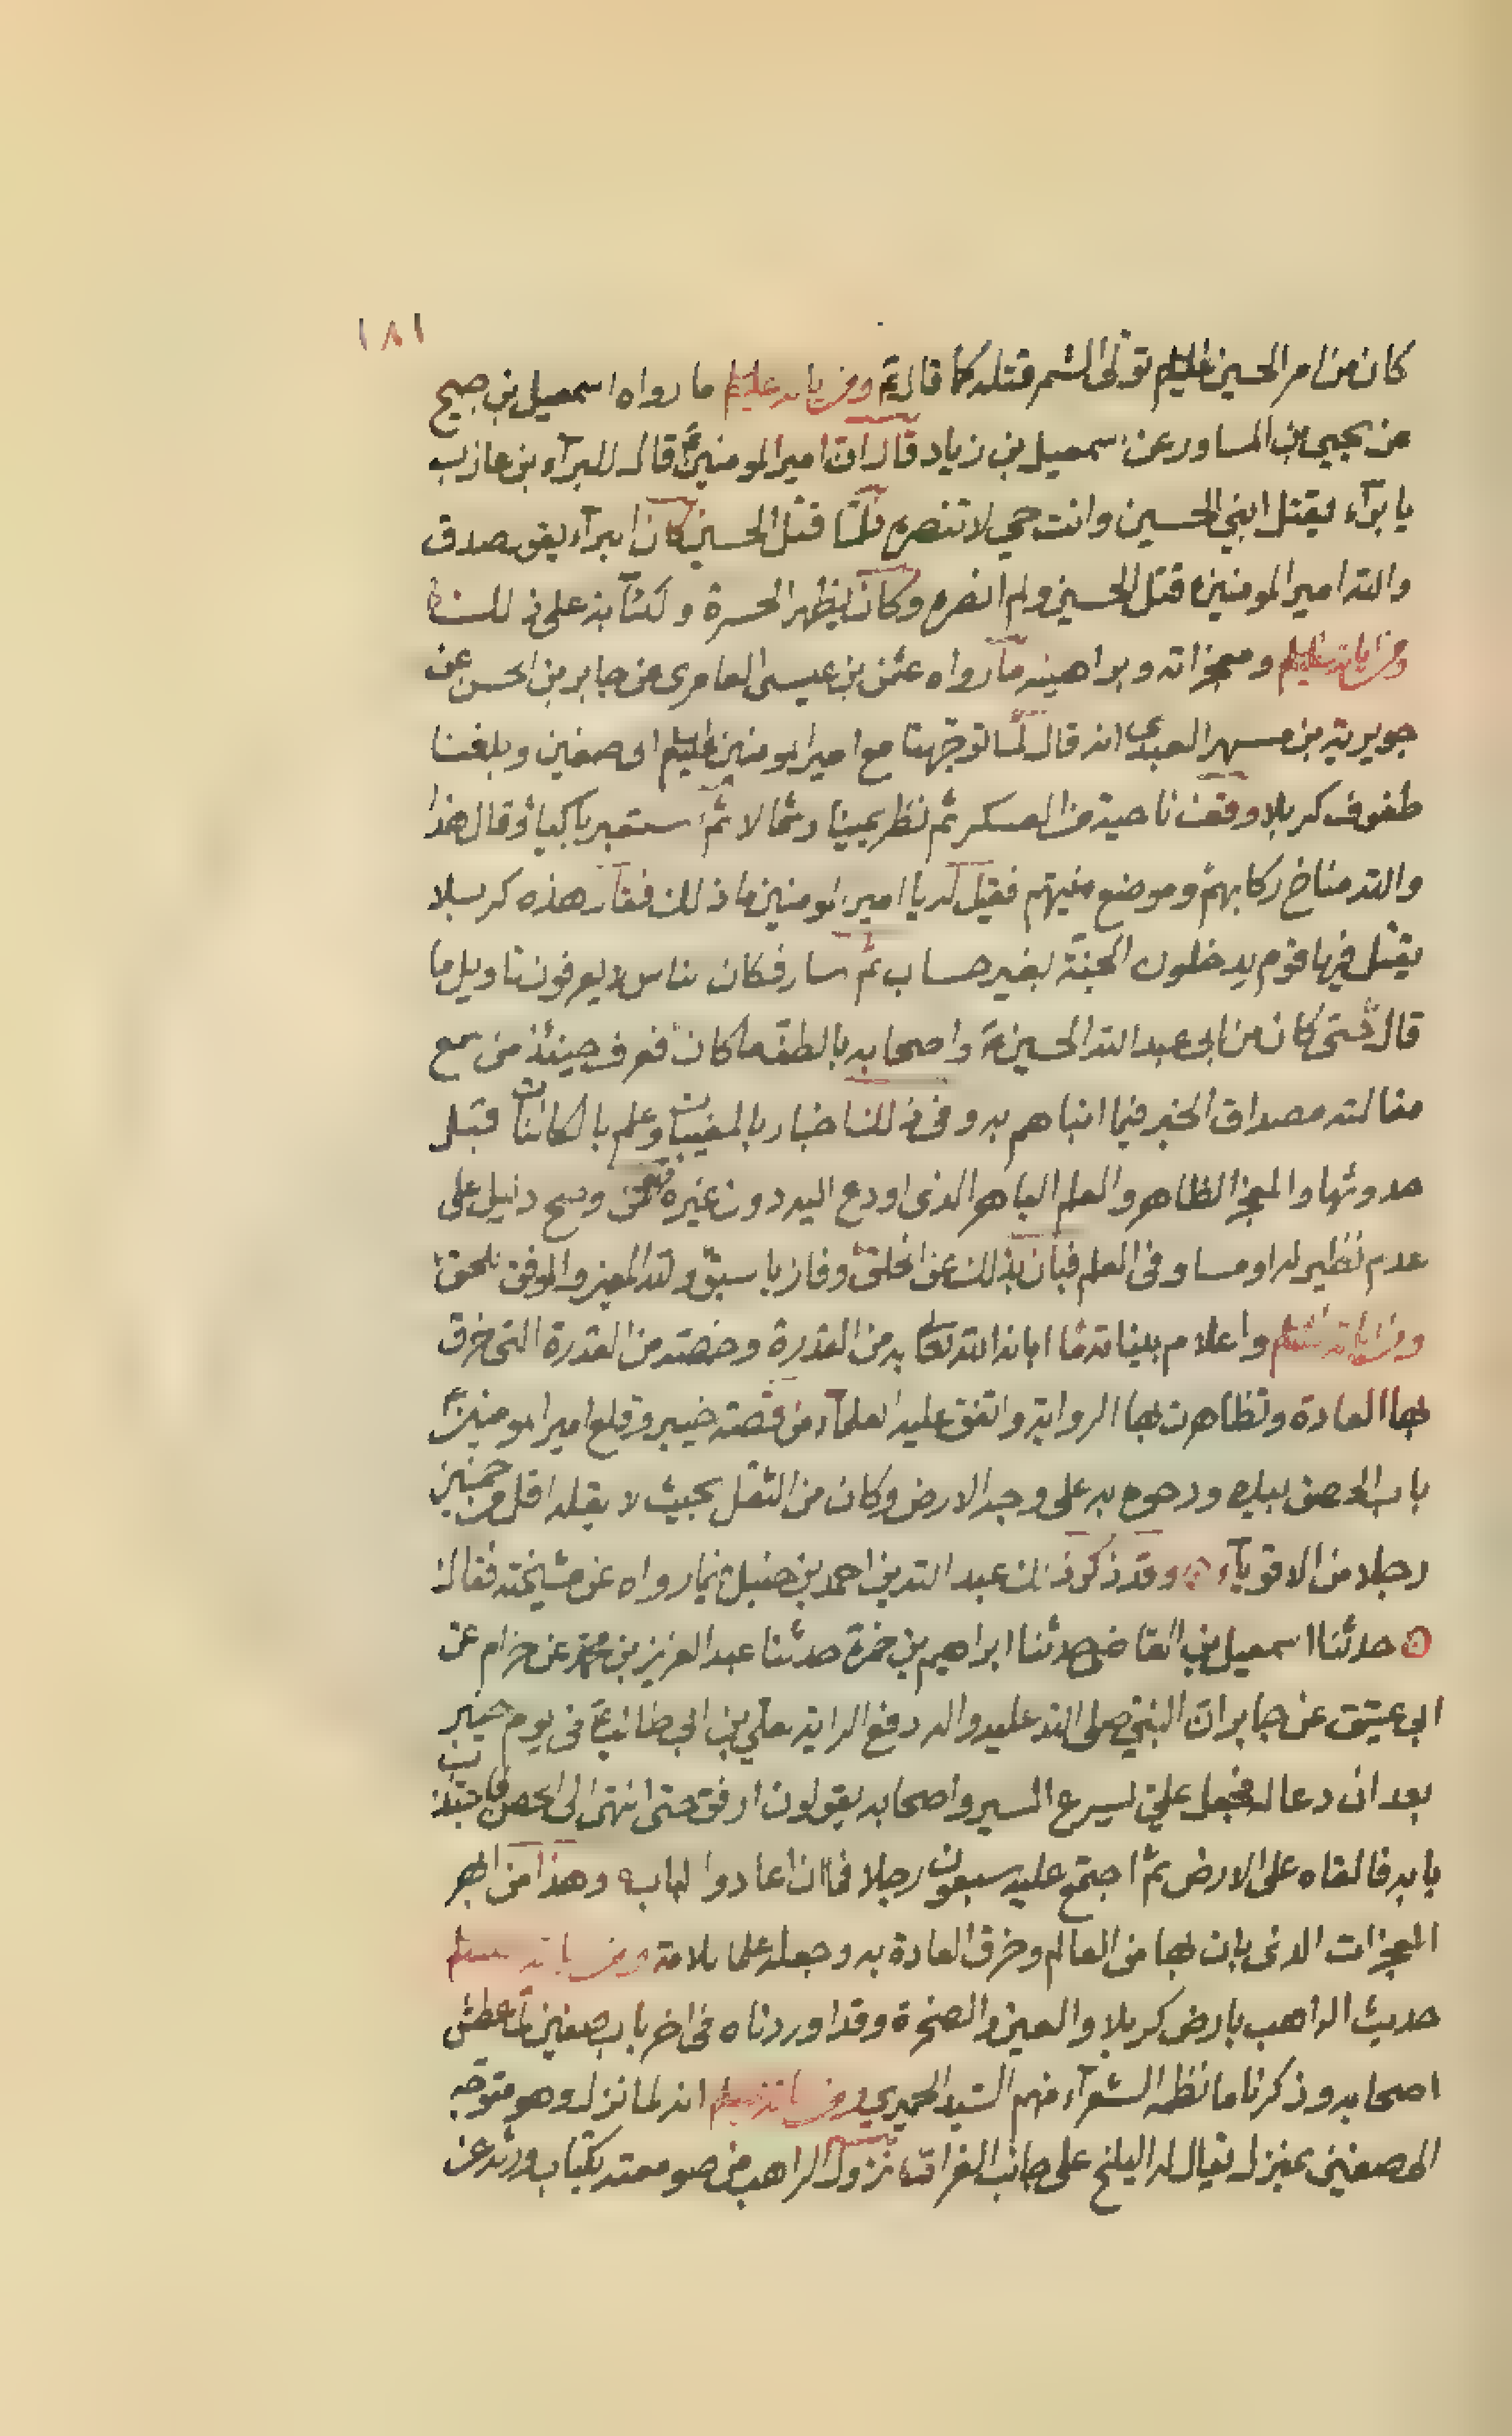 ١٨١
كان من امر الحسين عليلم تولى الشمر قتله كما قال ثم ومن اياته عليلم ما رواه اسمعيل بن صبيح
عن يحيى بن المساور عن اسمعيل بن زياد قال ان امير المومنينؑ قال للبرآء بن عازب
يا برآء يقتل ابني الحسين وانت حي لا تنصره فلمّا قتل الحسين كان البرآء يقول صدق
والله امير المومنين قتل الحسين ولم انصره وكان يظهر الحسرة و على ذلك
ومن اياته عليلم ومعجزاته وبراهينه ما رواه عثمن بن عيسى العامرى عن جابر بن الحسن عن
جويرية بن مسهر العبدي انه قال لمّا توجّهنا مع امير المومنين عليلم الى صفين وبلغنا
طفوف كربلا وقف ناحية من العسكر ثم نظر يمينا وشمالا ثم استعبر باكيا وقال هذا
والله مناخ ركابهم وموضع منيتهم فقيل له يا امير المومنين ما ذلك فقال هذه كربلا
يقتل فيها قوم يدخلون الجنّة بغير حساب ثم سار فكان الناس لا يعرفون تاويل ما
قال حتى كان من ابى عبد الله الحسينؑ واصحابه بالطف ما كان فعرف حينئذ من سمع
مقالته مصداق الخبر فيما انباهم به وفى ذلك اخبار بالمغيبات وعلم بالكائنات قبل
حدوثها والمعجز الظاهر والعلم الباهر الذى اودع اليه دون غيره وضح دليل على
عدم نظير له او مساو فى العلم فبان بذلك عن الخلق وفاز بالسبق ولله المعين والموفق للحق
ومن اياته عليلم واعلام بيناته ما ابانه الله تعالى به من القدرة وخصّه من القدرة التى خرق
بها العادة وتظاهرت بها الرواية واتفق عليه العلمآء من قصّة خيبر وقلع امير المومنينؑ
باب الحصن بيده ودحوه به على وجه الارض وكان من الثقل بحيث لا يقله اقل من خمسين
رجلا من الاقويآء وقد ذكر ذلك عبد الله بن احمد بن حنبل فيما رواه عن مشيخته فقال
حدثنا اسمعيل بن القاضى حدثنا ابراهيم بن حمزة حدثنا عبد العزيز بن محمد عن حزام عن
ابى عتيق عن جابر ان النبي صلى الله عليه واله دفع الراية لعلي بن ابى طالبؑ فى يوم خيبر
بعد ان دعا له فجعل علي يسرع السير واصحابه يقولون ارفق حتى انتهى الى الحصن فاجتذب
بابه فالقاه على الارض ثم اجتمع عليه سبعون رجلا فما ان اعادوا الباب وهذا من ابهر
المعجزات الذى بان بها من العالم وخرق العادة به وجعله علما لامامته ومن اياته عليلم
حديث الراهب بارض كربلا والعين والصخرة وقد اوردناه فى اخر باب صفين لمّا عطش
اصحابه وذكرنا ما نظمه الشعرآء منهم السّيد الحميري ومن اياته عليلم انه لما نزل وهو متوجّه
الى صفين بمنزل يقال له البليخ على جانب الفرات نزول الراهب من صومعته بكتاب ورثه عن